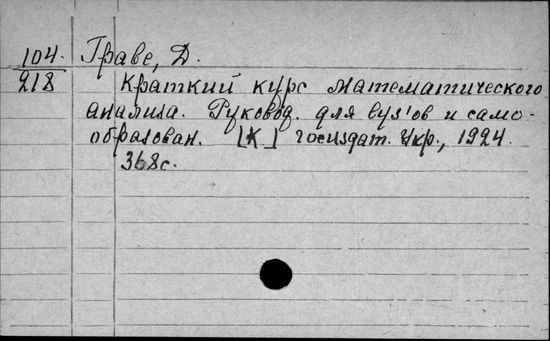 104. Граве, Д.
218 Краткий курс математического
анализа. Руковод. для вуз'ов и само-
образован. [К] Госиздат. Укр., 1924.
368с.